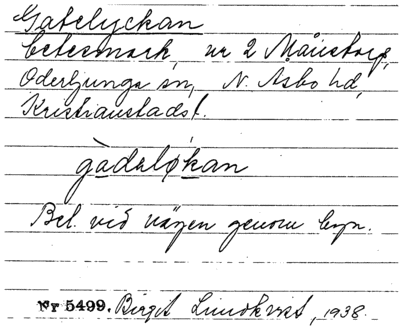 Gatelyckan
betesmark, nr 2 Månstorp,
Oderljunga sn, N. Åsbo hd,
Kristianstads l.
gàdəløkan
Bel. vid vägen genom byn.
Nr 5499. Birgit Lindkvist, 1938.